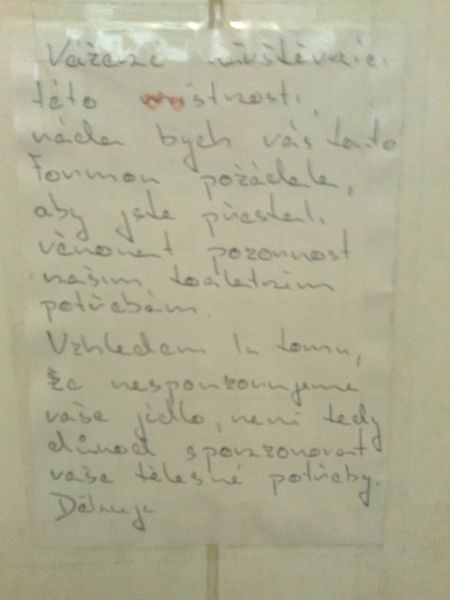 Vážení návštěvníci
této místnosti,
ráda bych vás touto
formou požádala,
aby jste přestali
věnovat pozornost
našim toaletním
potřebám.
Vzhledem k tomu,
že nesponzorujeme
vaše jídlo, není tedy
důvod sponzorovat
vaše tělesné potřeby.
Děkuji